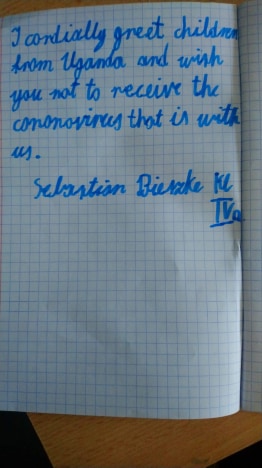 I cordially greet children
from Uganda and wish
you not to receive the
cononovirus that is with
us.
Sebastian Bieszke kl
IVa